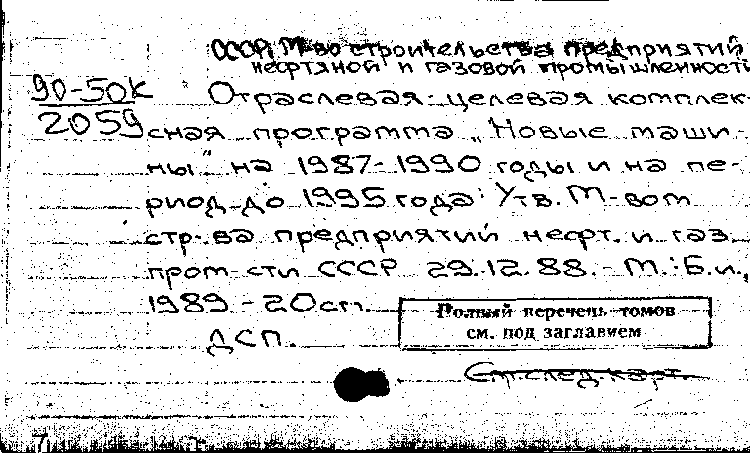 СССР, М-во строительства предприятий
нефтяной и газовой промышленности
90-50к
2059
Отраслевая целевая комплек-
сная программа „Новые маши-
ны" на 1987-1990 годы и на пе-
риод до 1995 года: Утв. М-вом
стр-ва предприятий нефт. и газ.
пром-сти СССР 29.12.88.- М.: Б.и.,
1989 - 20 см.
ДСП.
Полный перечень томов
см. под заглавием
См. след. карт.